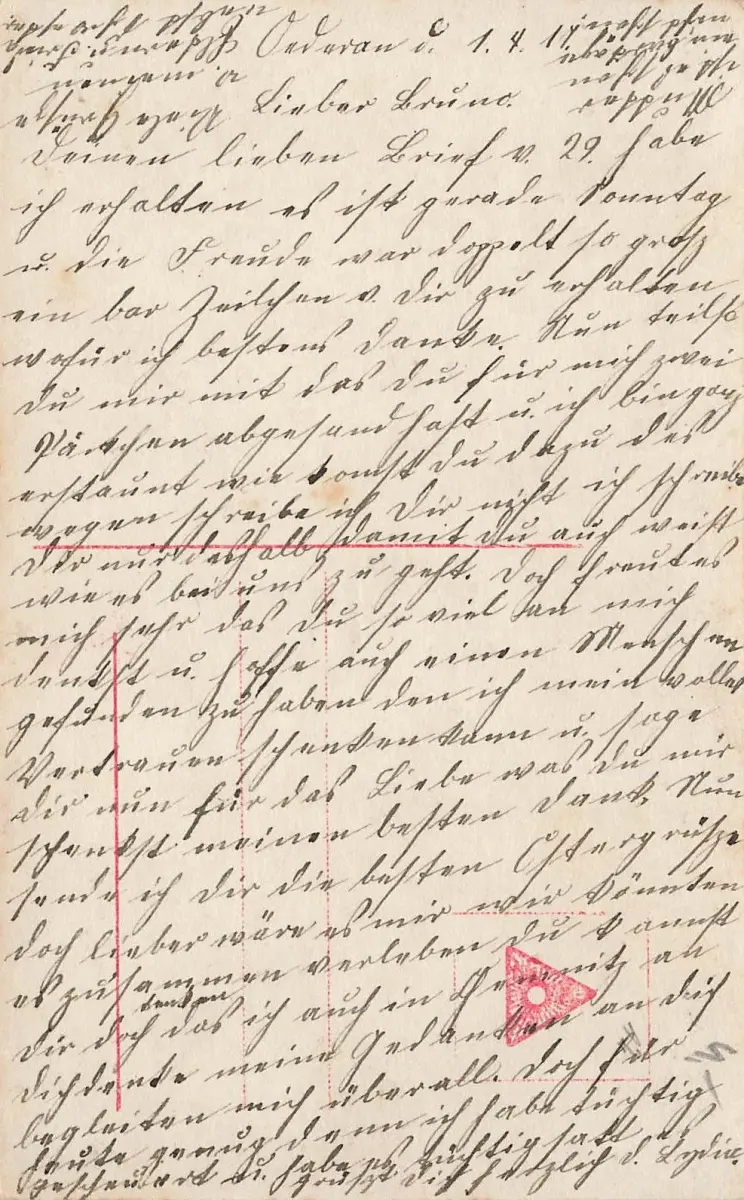 Oederan d. 1. 4. 17
Lieber Bruno.
Deinen lieben Brief v. 29. habe
ich erhalten es ist gerade Sonntag
u. die Freude war doppelt so grosz
ein bar Zeilchen v. Dir zu erhalten
wofür ich bestens danke. Nun teilst
du mir mit das du für mich zwei
Päckchen abgesand hast u. ich bin ganz
erstaunt wie komst du dazu des
wegen schreibe ich Dir nicht ich schreibe
Dir nur deshalb damit du auch weist
wie es bei uns zu geht. Doch freut es
mich sehr das Du so viel an mich
denkst u. hoffe auch einen Menschen
gefunden zu haben den ich mein volles
Vertrauen schenken kann u. sage
dir nun für das Liebe was du mir
schenkst meinen besten Dank. Nun
sende ich Dir die besten Ostergrüsze
doch lieber wäre es mir wir könnten
es zusammen verleben du kannst
dir doch denken das ich auch in an
dich denke meine Gedanken an dich
begleiten mich überall. Doch für
heute genug denn ich habe tüchtig
gescheuert u. habe es tüchtig satt es
grüszt dich herzlich d. Lydia.